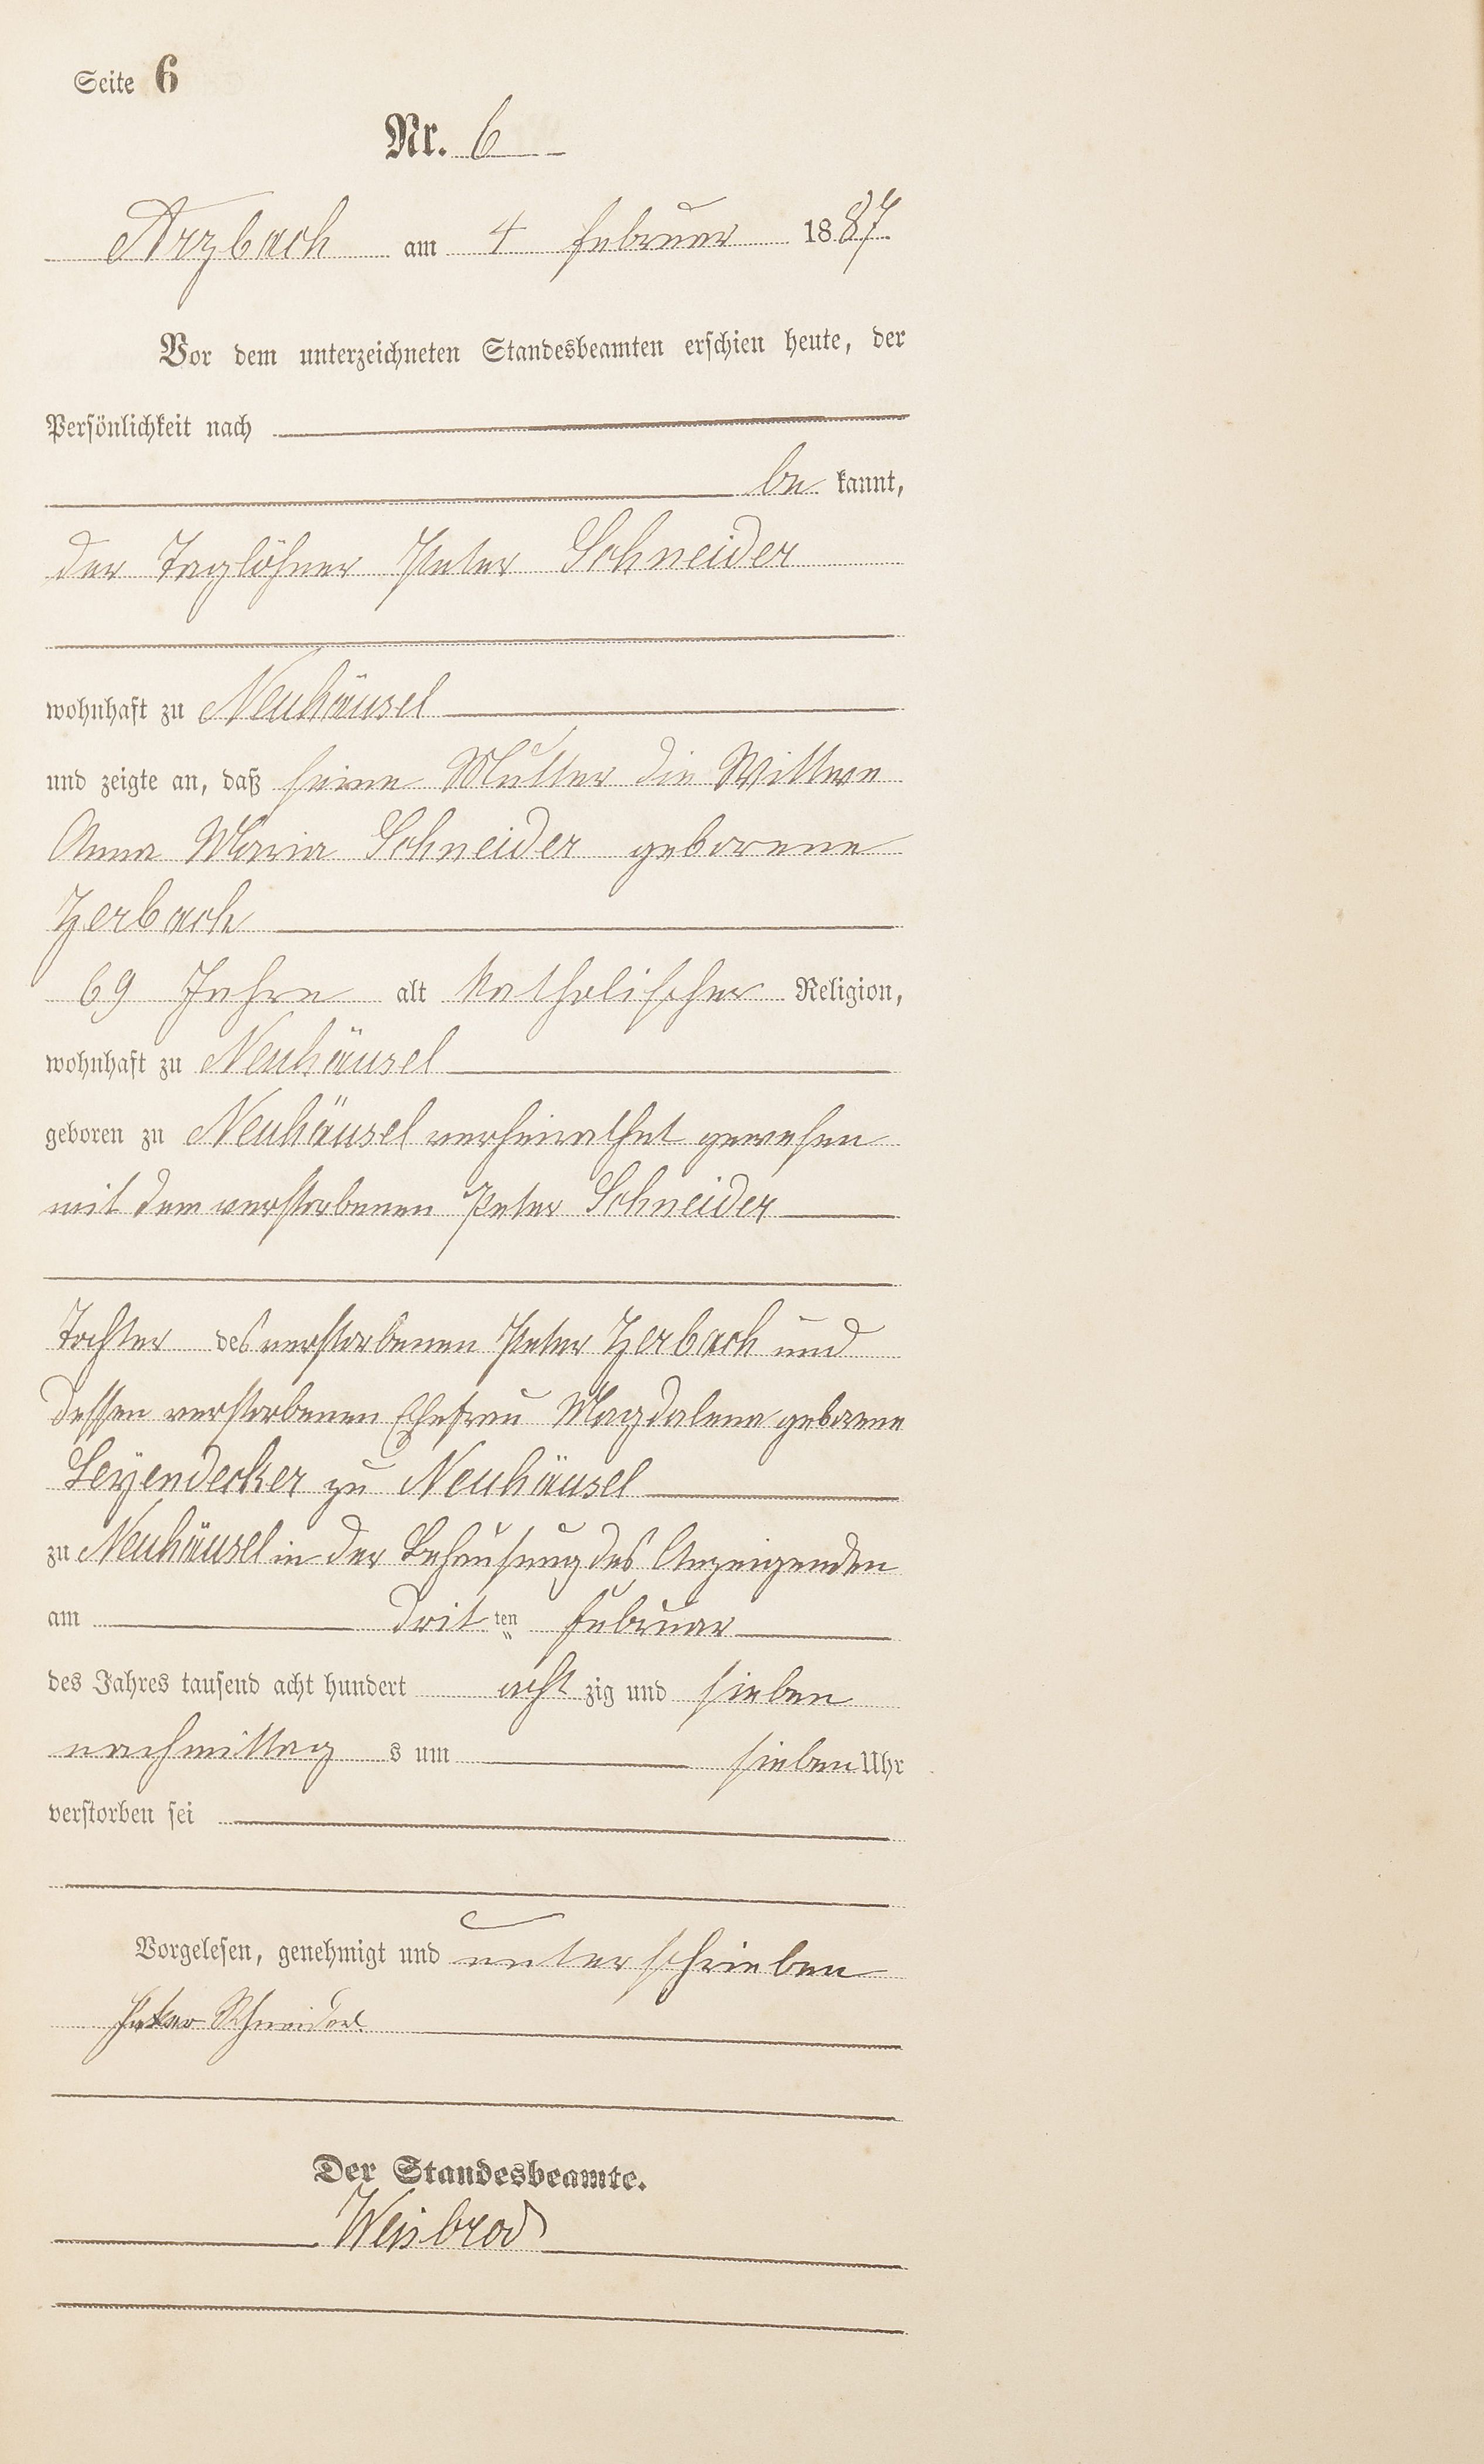 Seite 6
Nr. 6
Arzbach am 4 Februar 1887
Vor dem unterzeichneten Standesbeamten erschien heute, der
Persönlichkeit nach
be kannt,
der Taglöhner Peter Schneider
wohnhaft zu Neuhäusel
und zeigte an, daß seine Mutter die Wittwe
Anna Maria Schneider geborene
Zerbach
69 Jahre alt katholischer Religion,
wohnhaft zu Neuhäusel
geboren zu Neuhäusel verheirathet gewesen
mit dem verstorbenen Peter Schneider
Tochter des verstorbenen Peter Zerbach und
dessen verstorbenen Ehefrau Magdalena geborene
Leyendecker zu Neuhäusel
zu Neuhäusel in der Behausung des Anzeigenden
am dritten Februar
des Jahres tausend acht hundert acht zig und sieben
nachmittag s um sieben Uhr
verstorben sei
Vorgelesen, genehmigt und unterschrieben
Peter Schneider
Der Standesbeamte.
Weisbrod